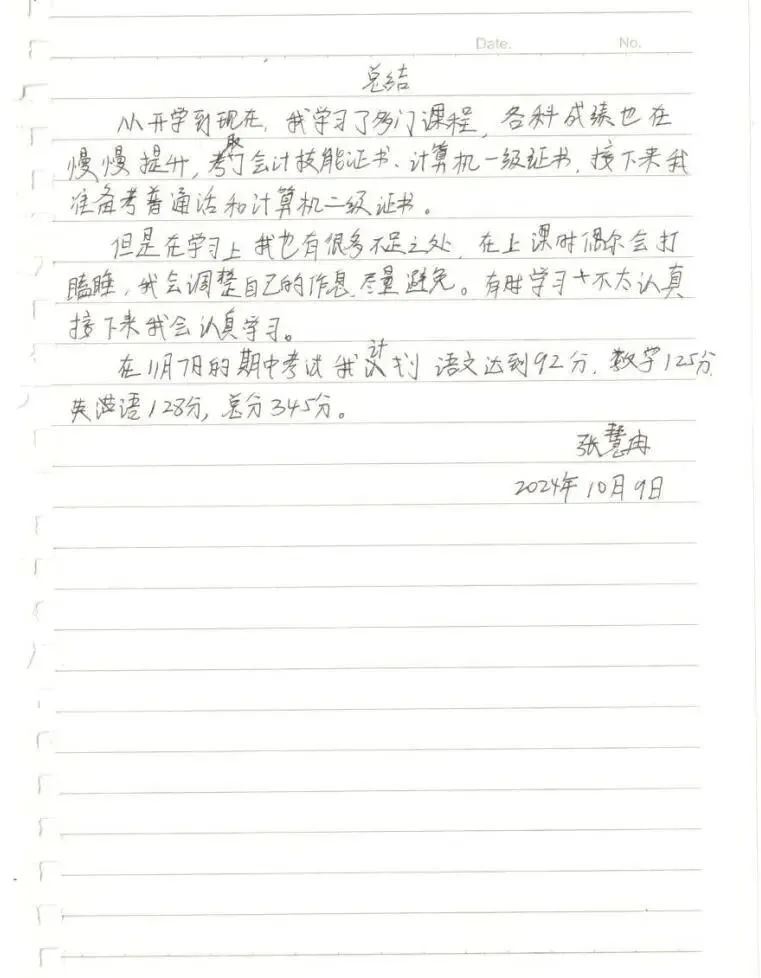 Date. No.
总结
从开学到现在，我学习了多门课程，各科成绩也在
慢慢提升，考取了会计技能证书、计算机一级证书，接下来我
准备考普通话和计算机二级证书。
但是在学习上我也有很多不足之处，在上课时偶尔会打
瞌睡，我会调整自己的作息，尽量避免。有时学习不太认真
接下来我会认真学习。
在11月7日的期中考试我计划语文达到92分，数学125分，
英语128分，总分345分。
张慧冉
2024年10月9日